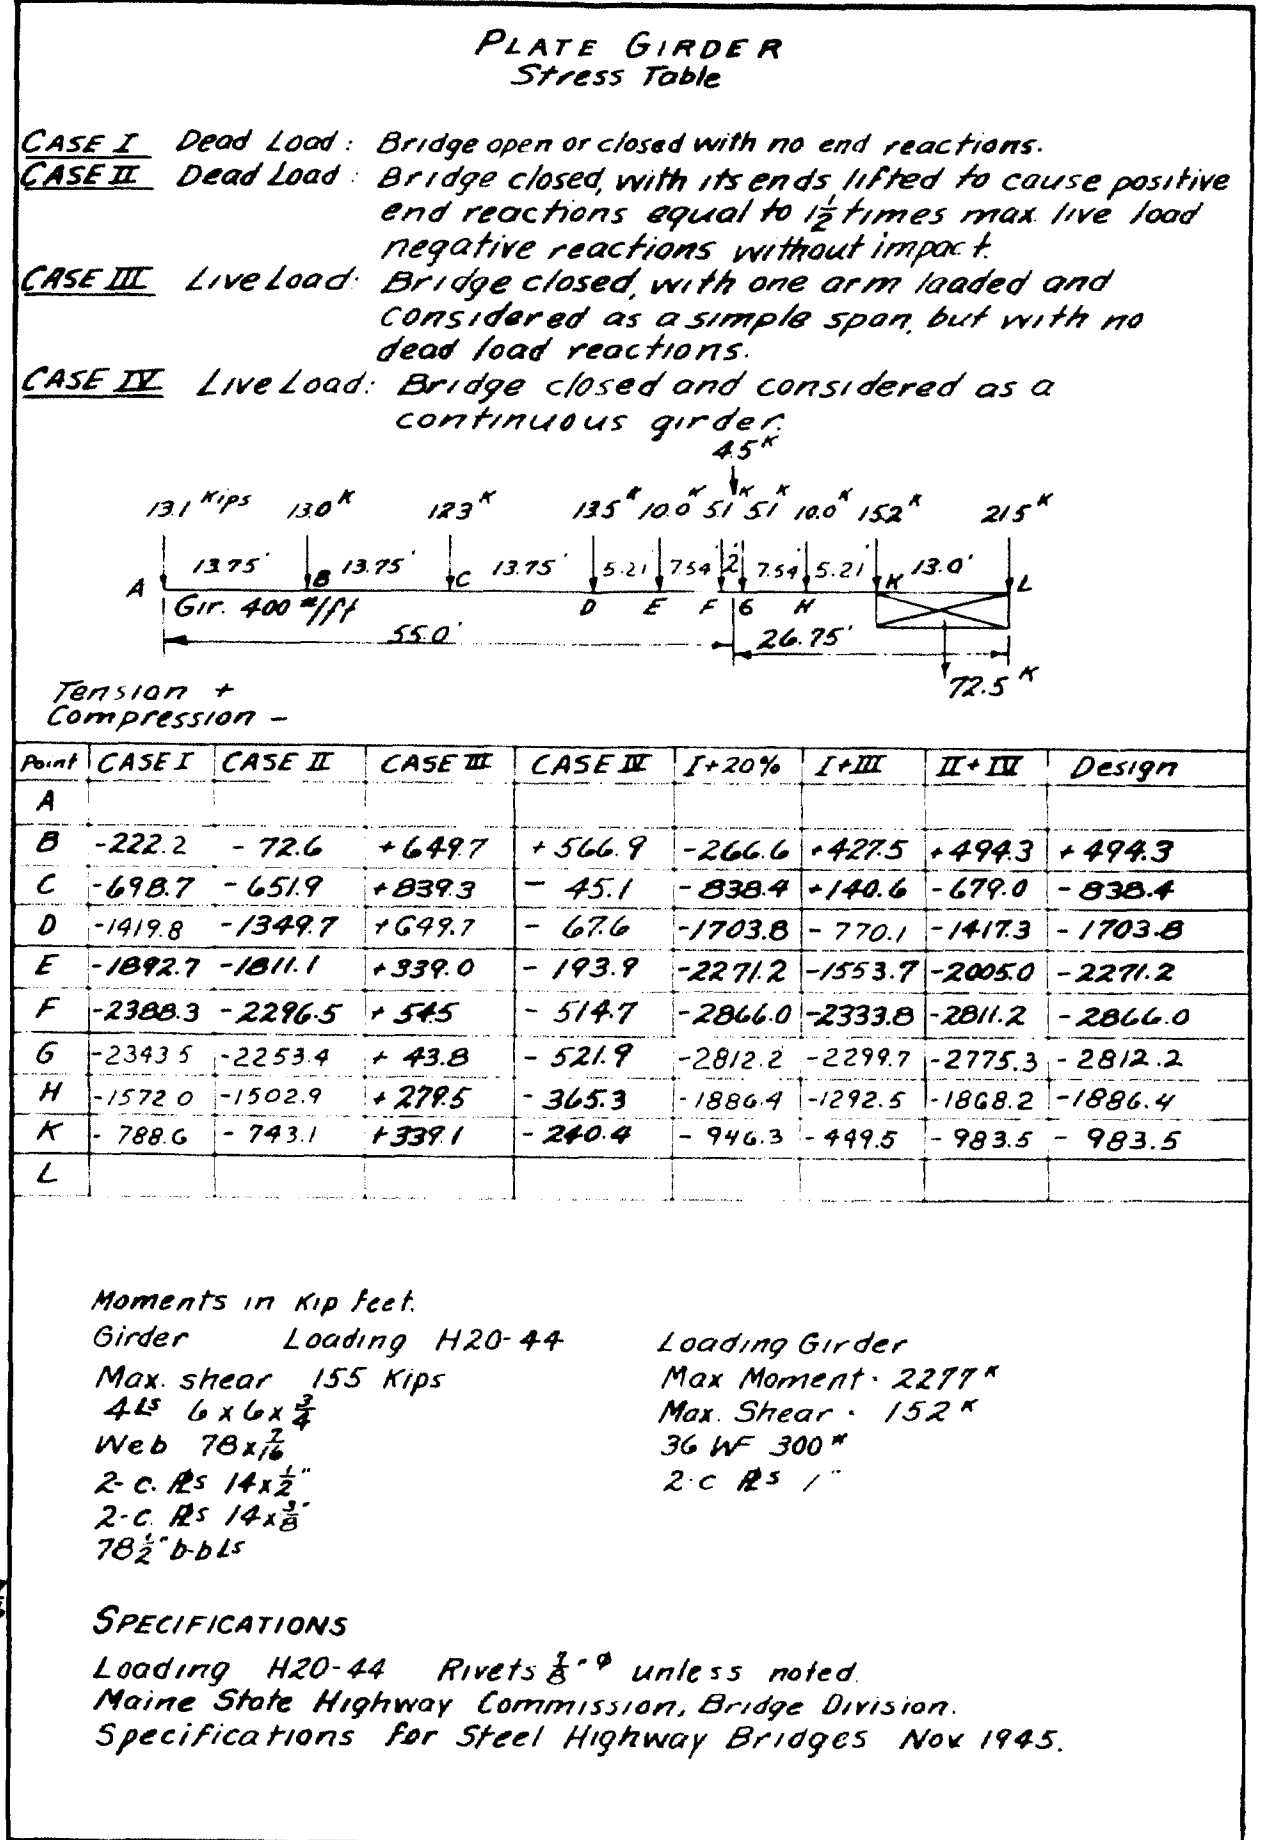 PLATE GIRDER
Stress Table
CASE I Dead Load: Bridge open or closed with no end reactions.
CASE II Dead Load: Bridge closed, with its ends lifted to cause positive
end reactions equal to 1½ times max. live load
negative reactions without impact.
CASE III Live Load: Bridge closed, with one arm loaded and
considered as a simple span, but with no
dead load reactions.
CASE IV Live Load: Bridge closed and considered as a
continuous girder.
4.5ᴷ
13.1 Kips 13.0ᴷ 12.3ᴷ 13.5ᴷ 10.0ᴷ 5.1ᴷ 5.1ᴷ 10.0ᴷ 15.2ᴷ 21.5ᴷ
13.75' 13.75' 13.75' 5.21 7.54 2' 7.54 5.21 13.0'
A B C D E F G H K L
Gir. 400 #/ft
55.0' 26.75'
72.5ᴷ
Tension +
Compression -
Point CASE I CASE II CASE III CASE IV I+20% I+III II+IV Design
A
B -222.2 -72.6 +649.7 +566.9 -266.6 +427.5 +494.3 +494.3
C -698.7 -651.9 +839.3 -45.1 -838.4 +140.6 -679.0 -838.4
D -1419.8 -1349.7 +649.7 -67.6 -1703.8 -770.1 -1417.3 -1703.8
E -1892.7 -1811.1 +339.0 -193.9 -2271.2 -1553.7 -2005.0 -2271.2
F -2388.3 -2296.5 +54.5 -514.7 -2866.0 -2333.8 -2811.2 -2866.0
G -2343.5 -2253.4 +43.8 -521.9 -2812.2 -2299.7 -2775.3 -2812.2
H -1572.0 -1502.9 +279.5 -365.3 -1886.4 -1292.5 -1868.2 -1886.4
K -788.6 -743.1 +339.1 -240.4 -946.3 -449.5 -983.5 -983.5
L
Moments in Kip feet.
Girder Loading H20-44 Loading Girder
Max. shear 155 Kips Max Moment. 2277ᴷ
4 Ls 6 x 6 x 3/4 Max. Shear. 152ᴷ
Web 78 x 7/16 36 WF 300#
2-c. ℞s 14 x 1/2" 2-c ℞s 1"
2-c. ℞s 14 x 3/8"
78½" b-b Ls
SPECIFICATIONS
Loading H20-44 Rivets 7/8"ø unless noted.
Maine State Highway Commission, Bridge Division.
Specifications for Steel Highway Bridges Nov. 1945.